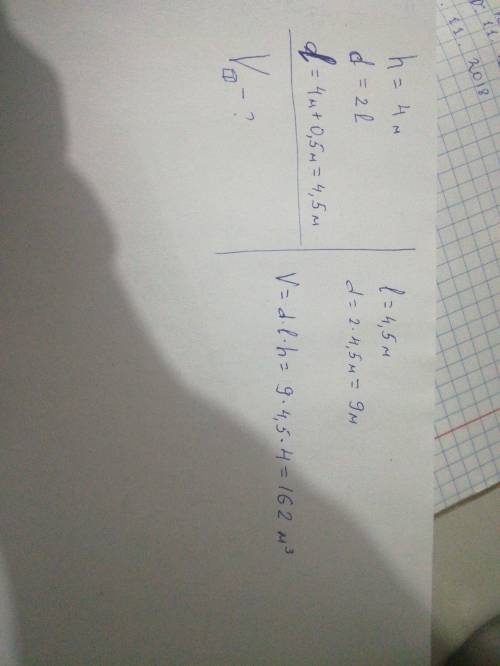 11. 2018
h = 4 м
d = 2l
l = 4м + 0,5м = 4,5м
V - ?
l = 4,5 м
d = 2 · 4,5м = 9м
V = d · l · h = 9 · 4,5 · 4 = 162 м³